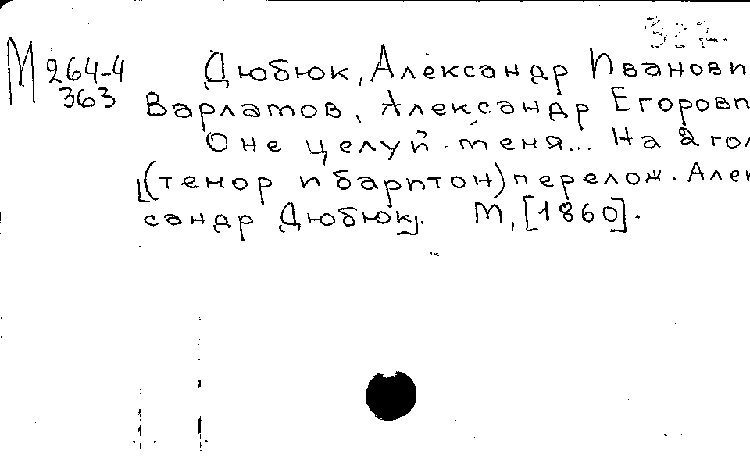 327.
М 264-4 Дюбюк, Александр Иванови
363 Варламов, Александр Егорови
О не целуй меня... На 2 гол
[(тенор и баритон) перелож. Алек
сандр Дюбюк]. М, [1860].